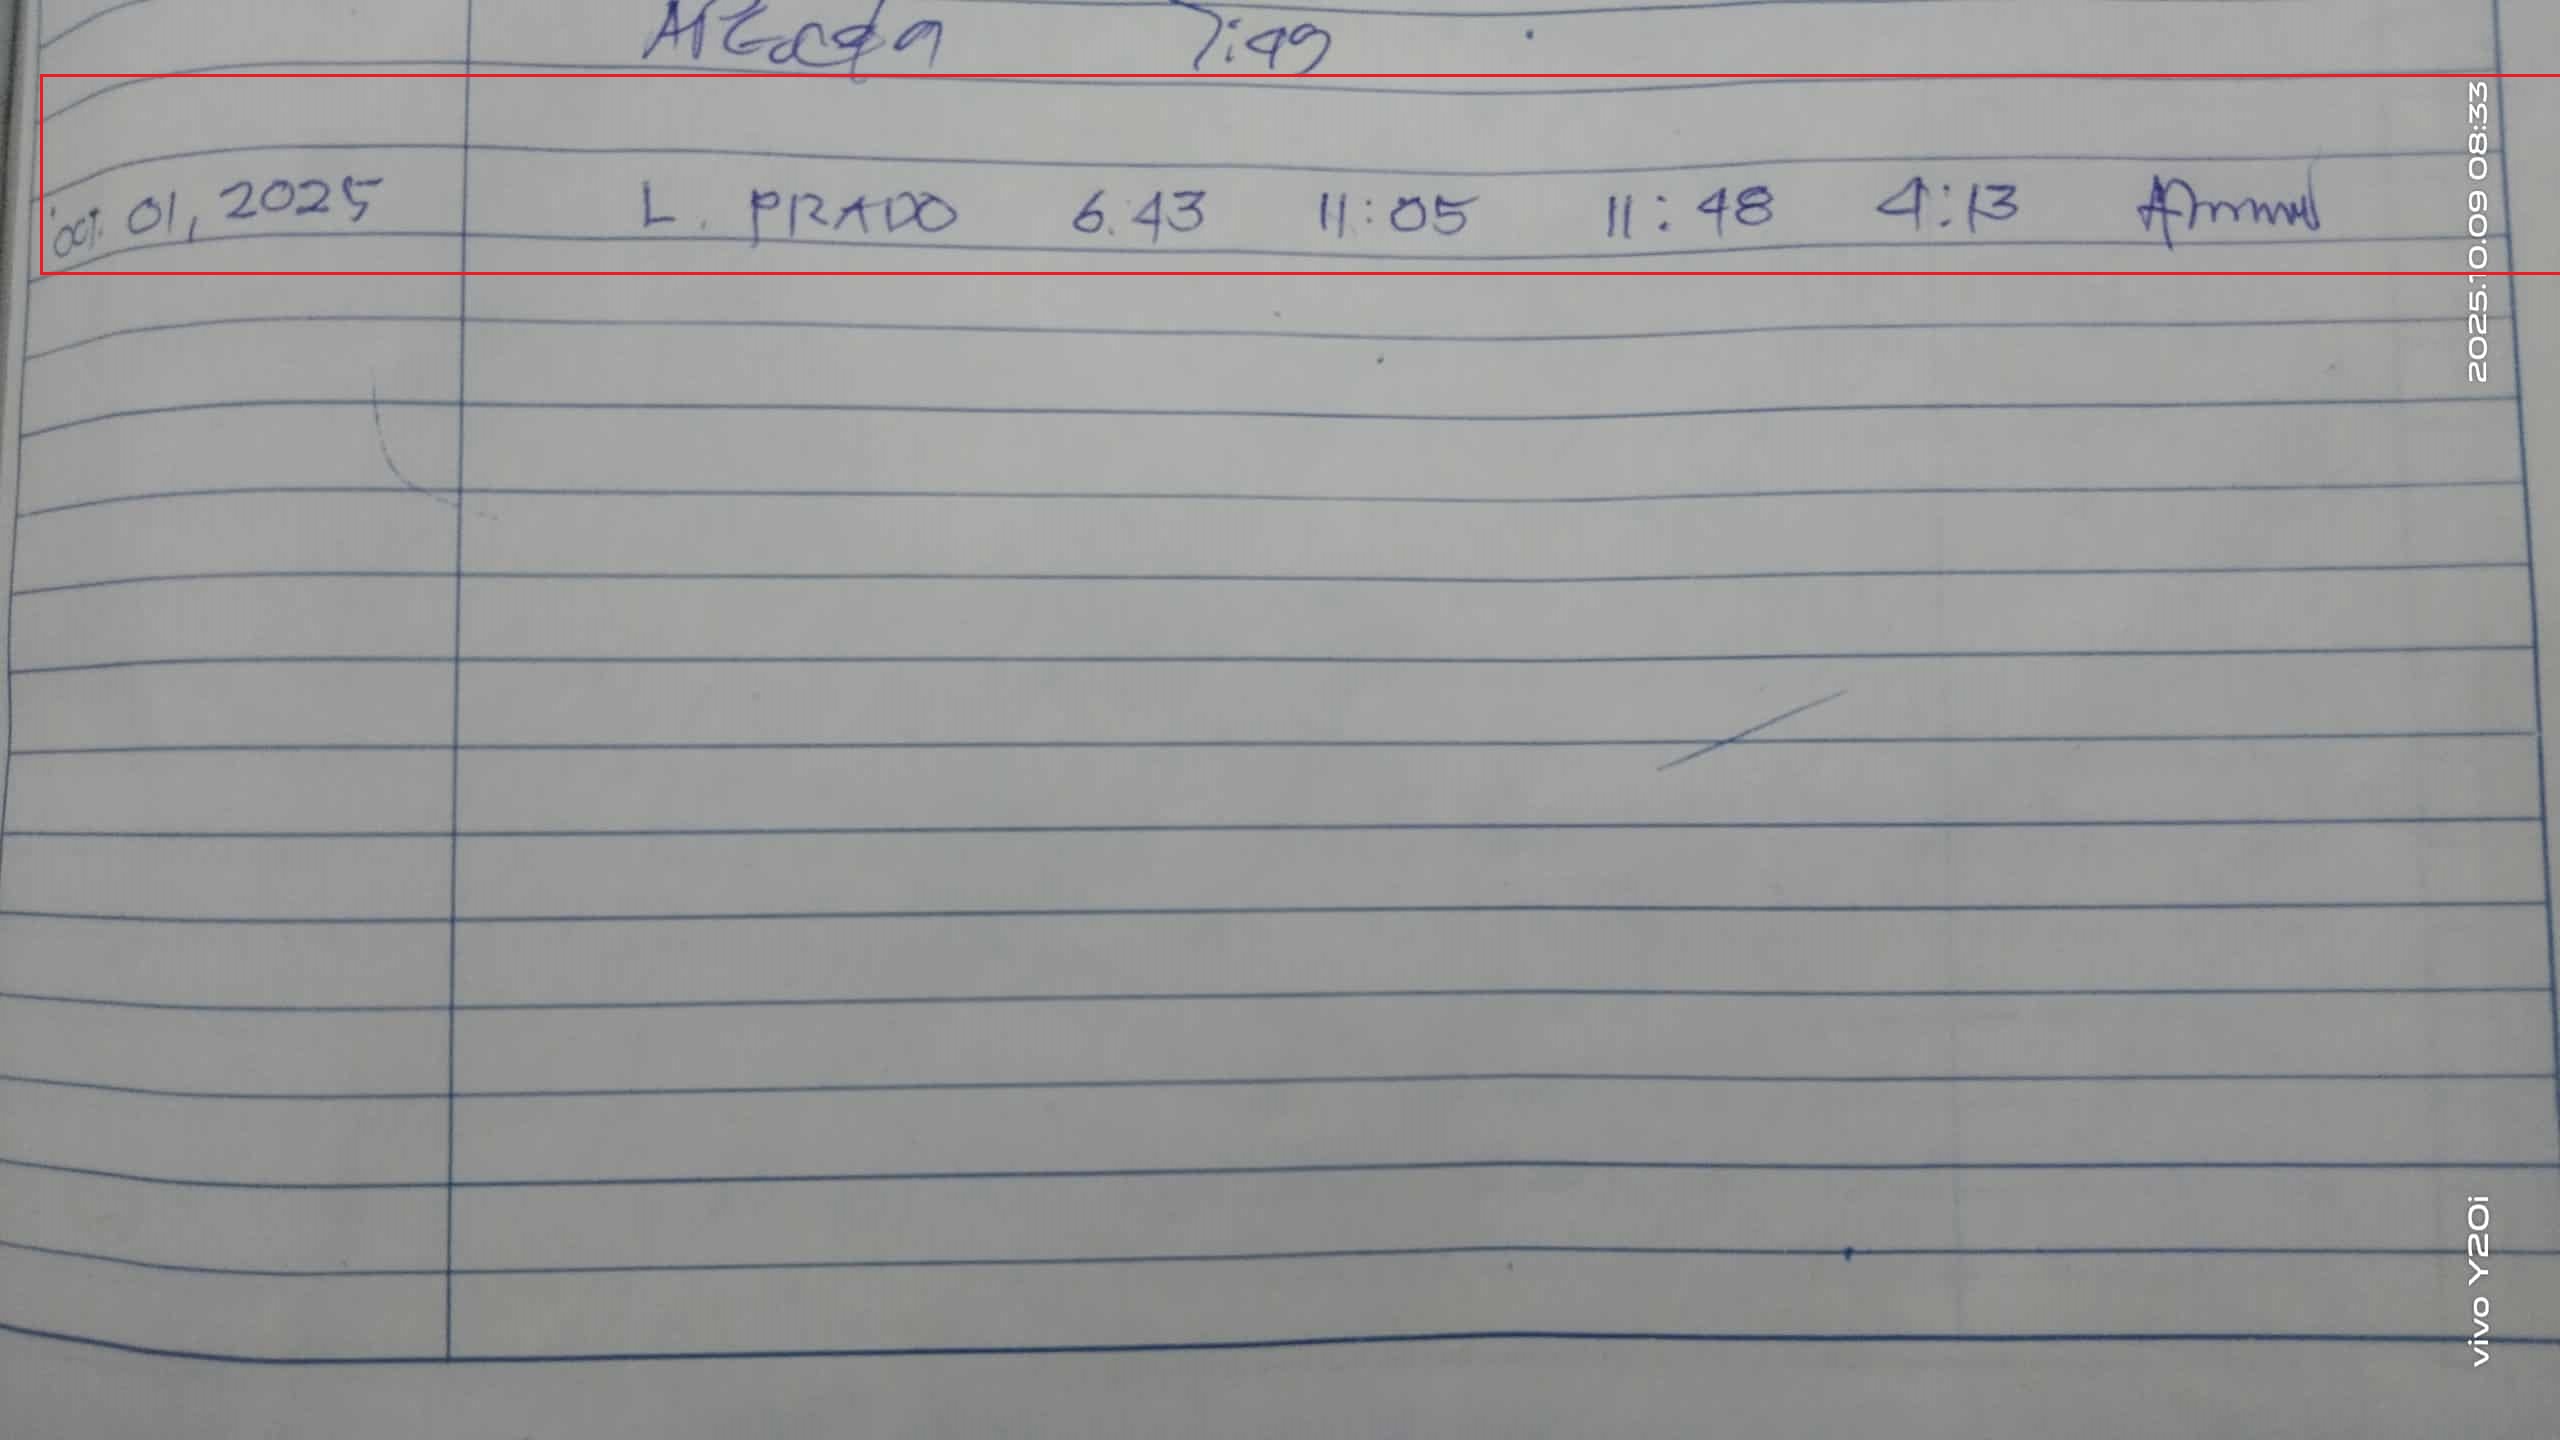 7:49
Oct. 01, 2025 L. PRADO 6:43 11:05 11:48 4:13
2025.10.09 08:33
vivo Y20i